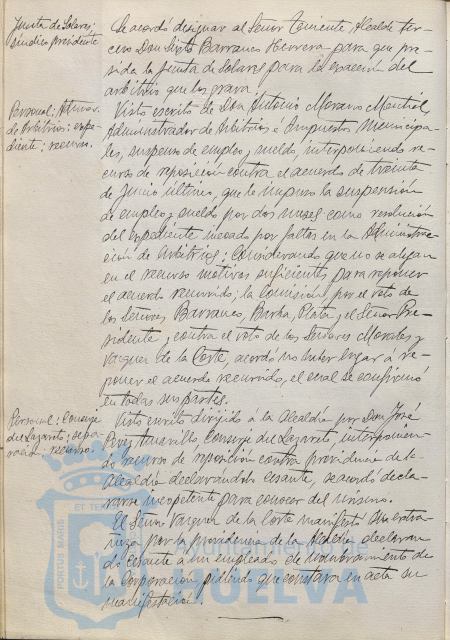 Junta de Solares;
síndico presidente
Se acordó designar al Señor Teniente Alcalde ter-
cero Don Sixto Barranco Herrera para que pre-
sida la Junta de Solares para la exacción del
arbitrio que los grava.
Personal; Admor.
de Arbitrios; expe-
diente; recurso.
Visto escrito de Don Antonio Morano Montiel,
Administrador de Arbitrios é Impuestos Municipa-
les, suspenso de empleo y sueldo, interponiendo re-
curso de reposición contra el acuerdo de treinta
de Junio último, que le impuso la suspensión
de empleo y sueldo por dos meses como resolución
del expediente incoado por faltas en la Administra-
ción de Arbitrios; Considerando que no se alegan
en el recurso motivos suficientes para reponer
el acuerdo recurrido; la Comisión por el voto de
los Señores Barranco, Barba, Plata y el Señor Pre-
sidente, contra el voto de los Señores Morales y
Vazquez de la Corte, acordó no haber lugar á re-
poner el acuerdo recurrido, el cual se confirmó
en todas sus partes.
Personal; Conserje
de Lazareto; sepa-
ración - recurso.
Visto escrito dirigido á la Alcaldía por Don José
Perez Conserje de Lazareto, interponien-
do recurso de reposición contra providencia de la
Alcaldía declarandole cesante, se acordó decla-
rarse incopetente para conocer del mismo.
El Señor Vazquez de la Corte manifestó su extra-
ñeza por la providencia de la Alcaldía declaran-
do cesante á un empleado de nombramiento de
la Corporación pidiendo que constara en acta su
manifestación.
ET TER
PORTUS MARIS
Ayuntamiento de
HUELVA